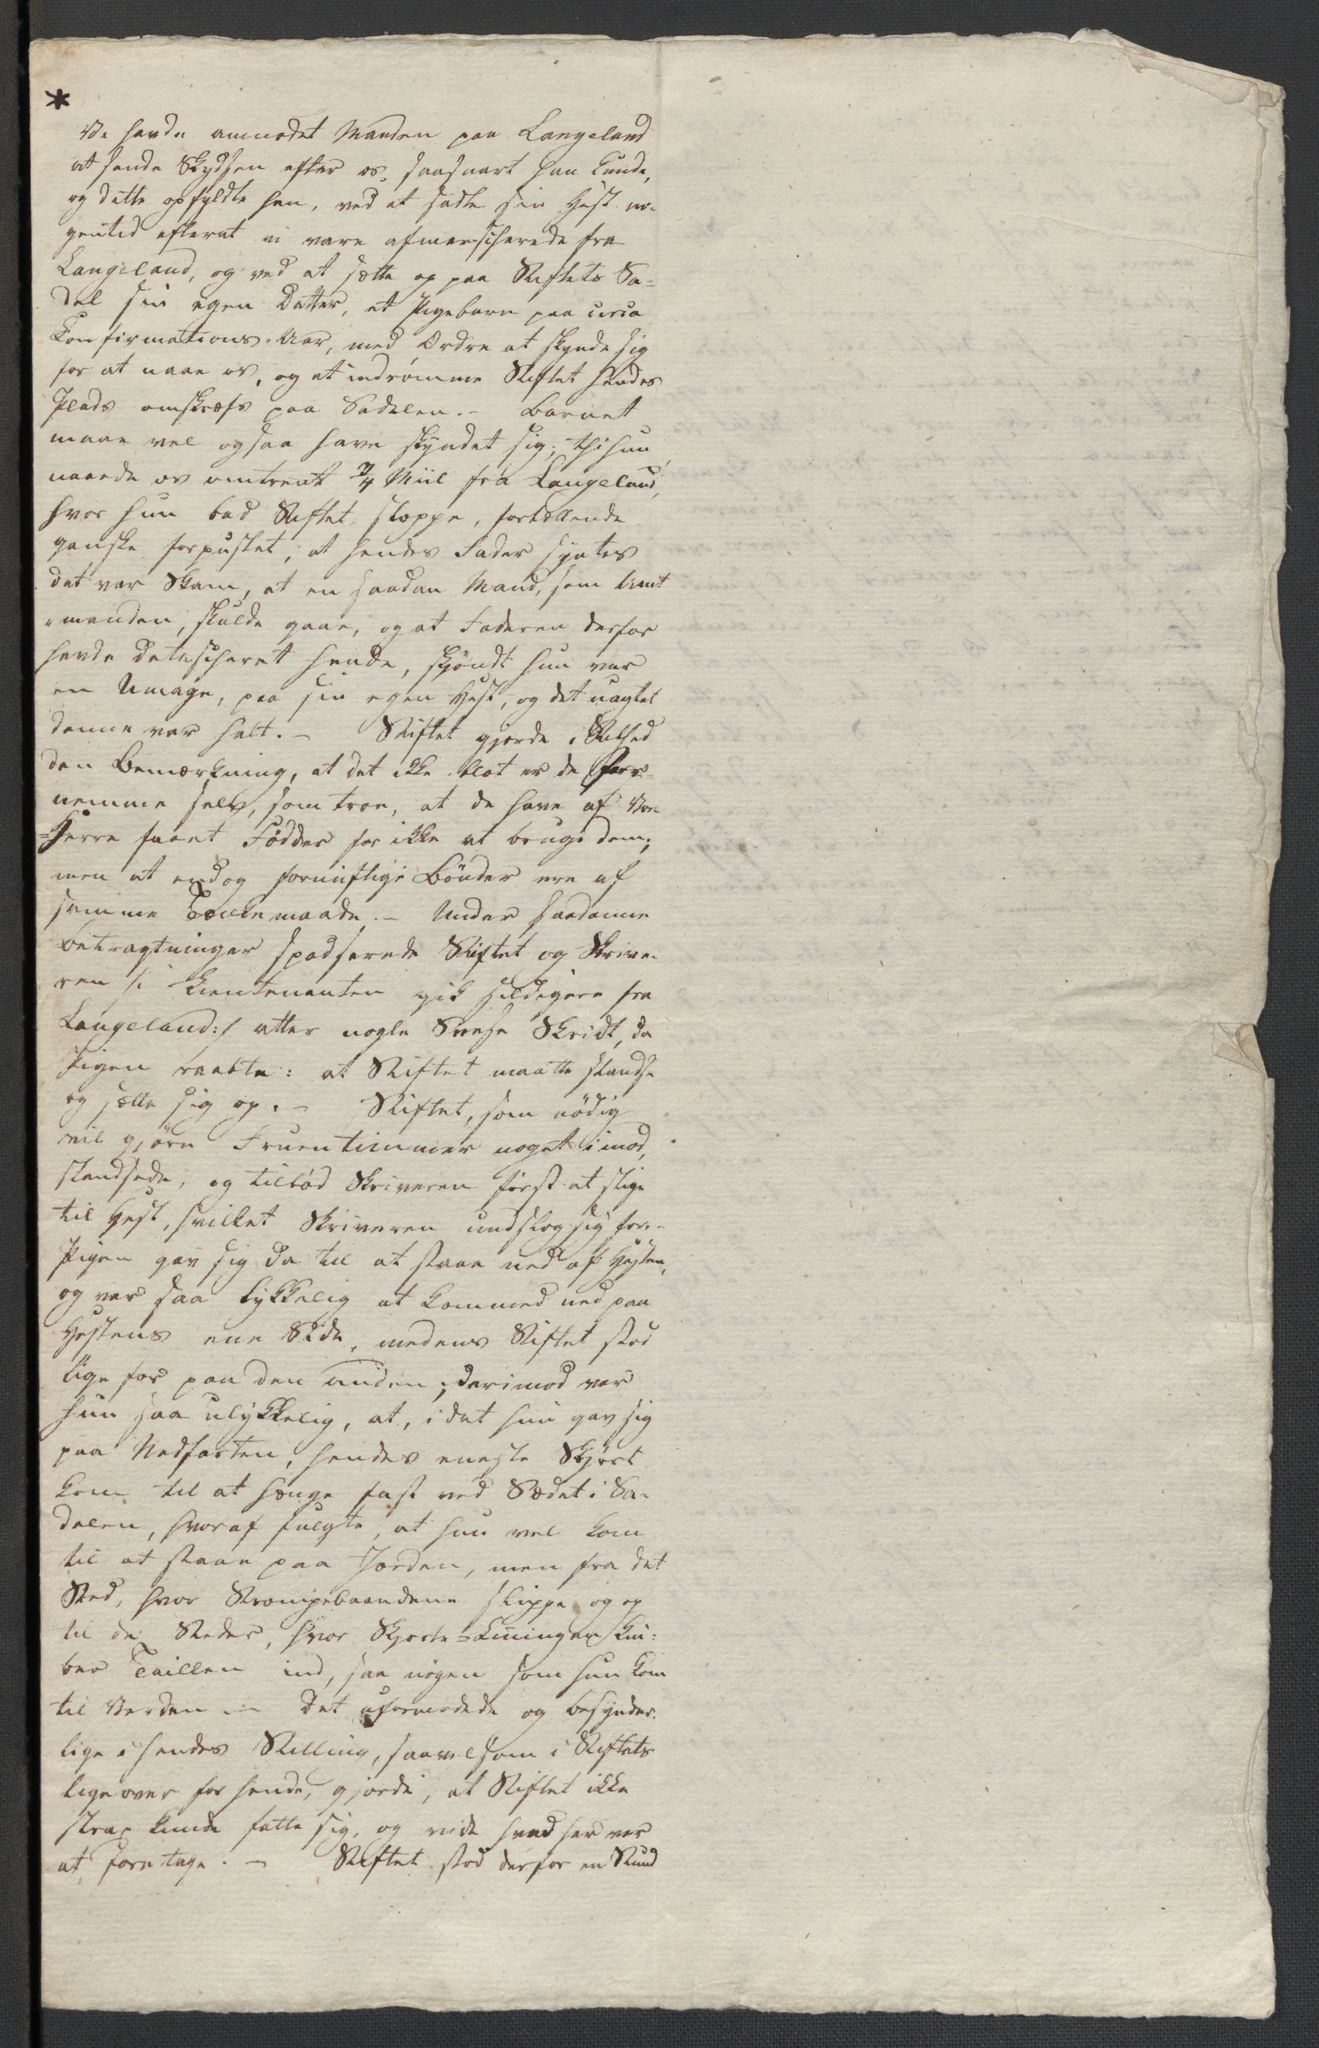 *
Vi havde anmodet Manden paa Langeland
at sende Skydsen efter os, saasnart han kunde,
og dette opfyldte han, ved at sadle sin Hest no-
gentid efterat vi vare afmarscherede fra
Langeland, og ved at sætte op paa Stiftets Sa-
del sin egen Datter, et Pigebarn paa circa
Confirmations-Aar, med Ordre at skynde sig
for at naae os, og at indrømme Stiftet hendes
Plads omskrefs paa Sadelen. – Barnet
maae vel ogsaa have skyndet sig; thi hun
naaede os omtrent ¾ Miil fra Langeland,
hvor hun bad Stiftet stoppe, fortællende
ganske forpustet, at hendes Fader syntes
det var Skam, at en saadan Mand, som Amt
-manden, skulde gaae, og at Faderen derfor
havde detascheret hende, skjøndt hun var
en Umage, paa sin egen Hest, og det uagtet
denne var halt. – Stiftet gjorde i Stilhed
den Bemærkning, at det ikke blot er de for-
nemme selv, som troe, at de have af Vor-
Herre faaet Fødder for ikke at bruge dem;
men at endog fornuftige Bønder ere af
samme Tænkemaade. – Under saadanne
betragtninger spadserede Stiftet og Skrive-
ren /: Lieutenanten gik sildigere fra
Langeland:/ atter nogle Snese Skridt, da
Pigen raabte: at Stiftet maatte standse
og sætte sig op. – Stiftet, som nødig
vil gjøre Fruentimmer noget imod,
standsede, og tilbød Skriveren først at stige
til Hest, hvilket Skriveren undslog sig for. –
Pigen gav sig da til at staae ned af Hesten,
og var saa lykkelig at komme ned paa
Hestens ene Side, medens Stiftet stod
lige for paa den anden; derimod var
hun saa ulykkelig, at, i det hun gav sig
paa Nedfarten, hendes eneste Skjørt
kom til at hænge fast ved Sædet i Sa-
delen, hvoraf fulgte, at hun vel kom
til at staae paa Jorden, men fra det
Sted, hvor Strømpebaandene slippe og op
til de Steder, hvor Skjorte-Linningen kni-
ber Taillen ind, saa nøgen som hun kom
til Verden. – Det uformodede og besynder-
lige i hendes Stilling, saavelsom i Stiftets
ligeover for hende, gjorde, at Stiftet ikke
strax kunde fatte sig, og vide hvad her var
at foretage. – Stiftet stod derfor en Stund